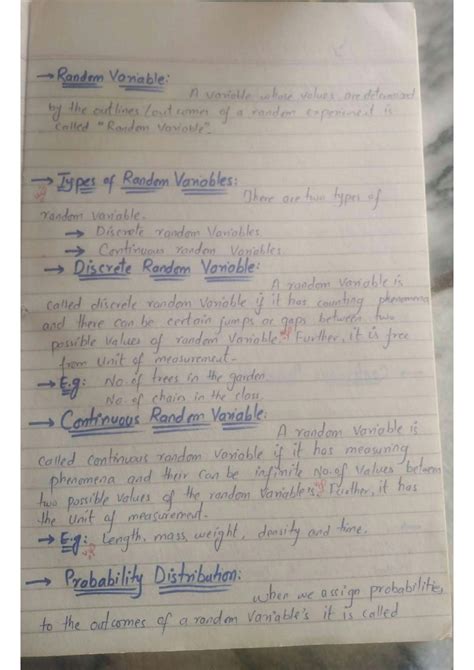 → Random Variable:
A variable whose values are determined
by the outlines/outcomes of a random experiment is
called "Random Variable".
→ Types of Random Variables:
There are two types of
random variable.
→ Discrete random Variables
→ Continuous random Variables.
→ Discrete Random Variable:
A random Variable is
called discrete random Variable if it has counting phenomena
and there can be certain jumps or gaps between two
possible values of random Variable. Further, it is free
from Unit of measurement.
→ E.g: No. of trees in the garden
No. of chairs in the class.
→ Continuous Random Variable:
A random Variable is
called continuous random Veriable if it has measuring
phenomena and their can be infinite No. of Values between
two possible values of the random Variables. Further, it has
the Unit of measurement.
→ E.g: Length, mass, weight, density and time.
→ Probability Distribution:
when we assign probabilities
to the outcomes of a random Variable's it is called